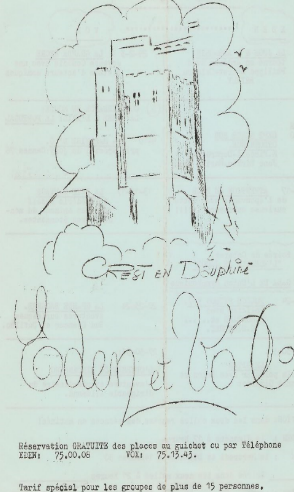 CREST EN DAUPHINÉ
Eden et Vox
Réservation GRATUITE des places au guichet ou par Téléphone
EDEN: 75.00.08 VOX: 75.13.43.
Tarif spécial pour les groupes de plus de 15 personnes.